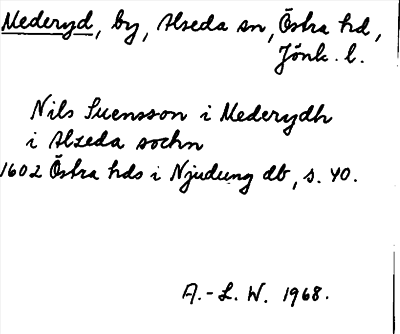 Mederyd, by, Alseda sn, Östra hd,
Jönk. l.
Nils Suensson i Mederydh
i Alzeda sochn
1602 Östra hds i Njudung db, s. 40.
A.-L. W. 1968.